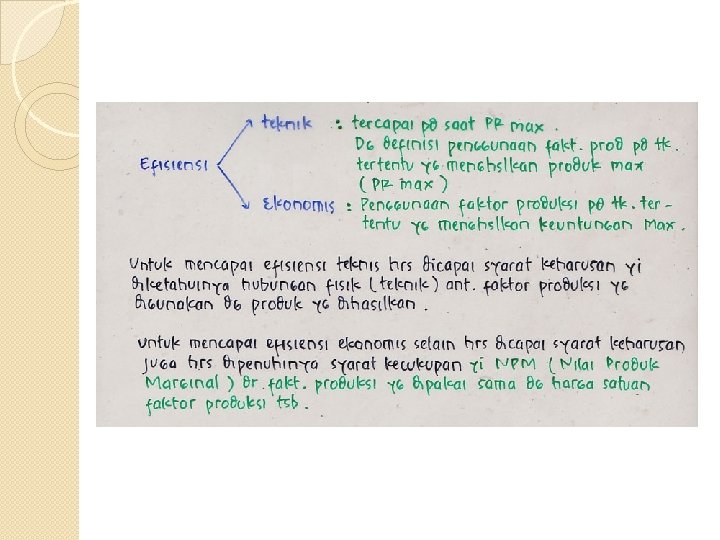 Efisiensi
teknik : tercapai pd saat PR max.
Dg definisi penggunaan fakt. prod pd tk.
tertentu yg menghslkan produk max
(PR max)
Ekonomis : Penggunaan faktor produksi pd tk. ter-
tentu yg menghslkan keuntungan Max.
Untuk mencapai efisiensi teknis hrs dicapai syarat keharusan yi
diketahuinya hubungan fisik (teknik) ant. faktor produksi yg
digunakan dg produk yg dihasilkan.
Untuk mencapai efisiensi ekonomis selain hrs dicapai syarat keharusan
juga hrs dipenuhinya syarat kecukupan yi NPM (Nilai Produk
Marginal) dr. fakt. produksi yg dipakai sama dg harga satuan
faktor produksi tsb.